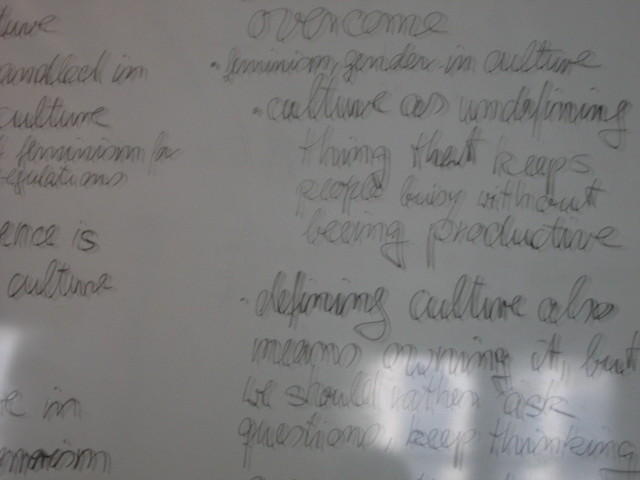 ture
overcome
andlach im
• feminism, gender in culture
culture
• culture as undefining
feminism for
thing that keeps
regulations
people busy without
ence is
beeing productive
culture
• defining culture also
means owning it, but
we should rather ask
e in
questions, keep thinking